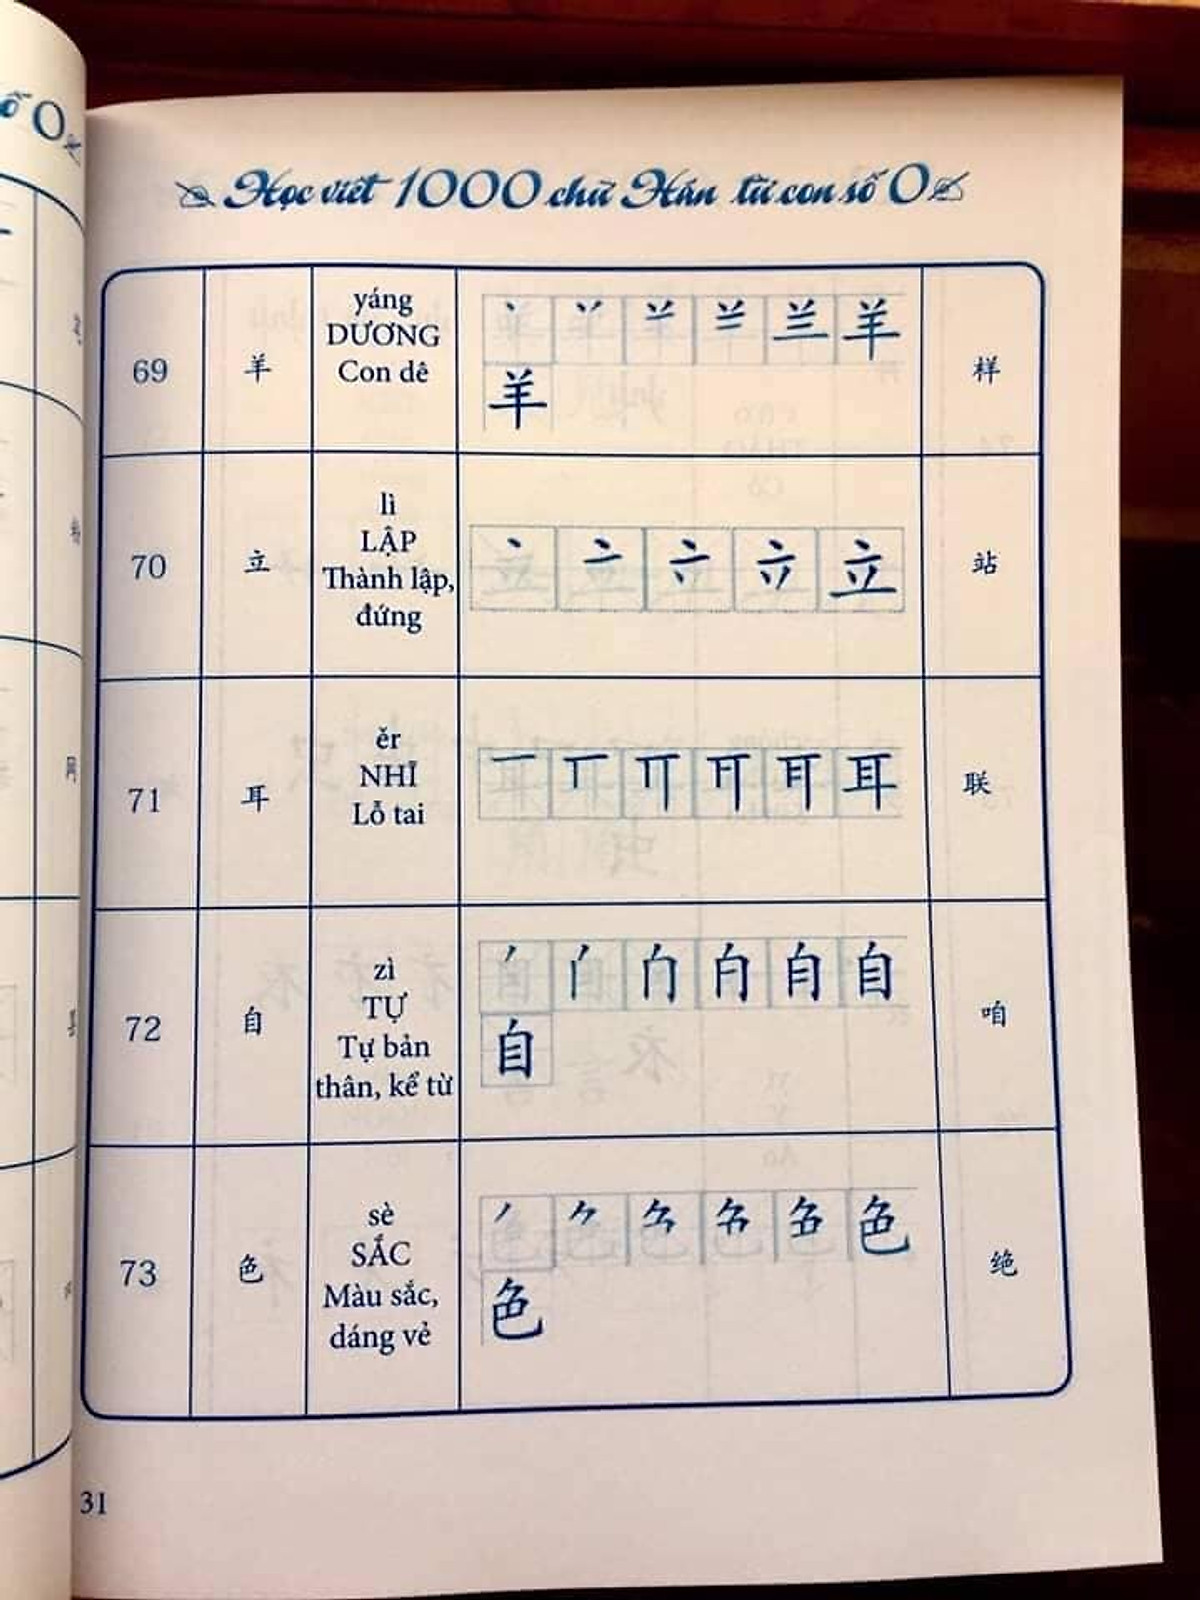 Học viết 1000 chữ Hán từ con số 0
69
羊
yáng
DƯƠNG
Con dê
丶 丷 䒑 兰 羊
羊
样
70
立
lì
LẬP
Thành lập,
đứng
丶 亠 立
站
71
耳
ěr
NHĨ
Lỗ tai
一 丅 耳
联
72
自
zì
TỰ
Tự bản
thân, kể từ
自
自
咱
73
色
sè
SẮC
Màu sắc,
dáng vẻ
色
色
绝
31
ố 0